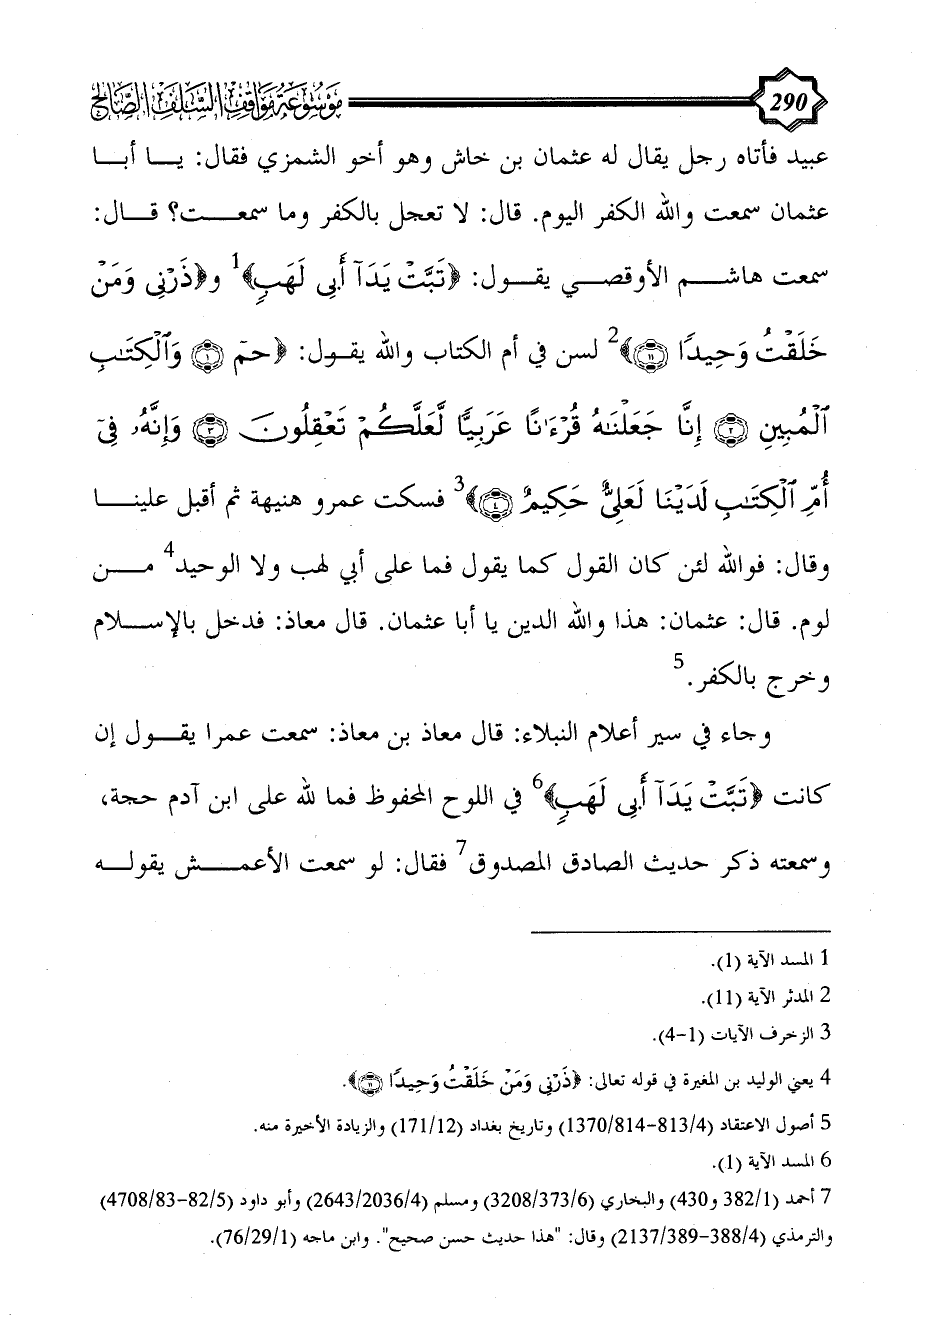 290 موسوعة مواقف السلف الصالح
عبيد فأتاه رجل يقال له عثمان بن خاش وهو أخو الشمزي فقال: يا أبا
عثمان سمعت والله الكفر اليوم. قال: لا تعجل بالكفر وما سمعت؟ قال:
سمعت هاشم الأوقصي يقول: ﴿تَبَّتْ يَدَآ أَبِي لَهَبٍ﴾1 و﴿ذَرْنِي وَمَنْ
خَلَقْتُ وَحِيدًا ۝١١﴾2 لسن في أم الكتاب والله يقول: ﴿حمٓ ۝١ وَٱلْكِتَٰبِ
ٱلْمُبِينِ ۝٢ إِنَّا جَعَلْنَٰهُ قُرْءَٰنًا عَرَبِيًّا لَّعَلَّكُمْ تَعْقِلُونَ ۝٣ وَإِنَّهُۥ فِىٓ
أُمِّ ٱلْكِتَٰبِ لَدَيْنَا لَعَلِىٌّ حَكِيمٌ ۝٤﴾3 فسكت عمرو هنيهة ثم أقبل علينا
وقال: فوالله لئن كان القول كما يقول فما على أبي لهب ولا الوحيد4 من
لوم. قال: عثمان: هذا والله الدين يا أبا عثمان. قال معاذ: فدخل بالإسلام
وخرج بالكفر.5
وجاء في سير أعلام النبلاء: قال معاذ بن معاذ: سمعت عمرا يقول إن
كانت ﴿تَبَّتْ يَدَآ أَبِي لَهَبٍ﴾6 في اللوح المحفوظ فما لله على ابن آدم حجة،
وسمعته ذكر حديث الصادق المصدوق7 فقال: لو سمعت الأعمش يقوله
1 المسد الآية (1).
2 المدثر الآية (11).
3 الزخرف الآيات (1-4).
4 يعني الوليد بن المغيرة في قوله تعالى: ﴿ذَرْنِي وَمَنْ خَلَقْتُ وَحِيدًا ۝١١﴾.
5 أصول الاعتقاد (4/813-814/1370) وتاريخ بغداد (12/171) والزيادة الأخيرة منه.
6 المسد الآية (1).
7 أحمد (1/382 و430) والبخاري (6/373/3208) ومسلم (4/2036/2643) وأبو داود (5/82-83/4708)
والترمذي (4/388-389/2137) وقال: "هذا حديث حسن صحيح". وابن ماجه (1/29/76).